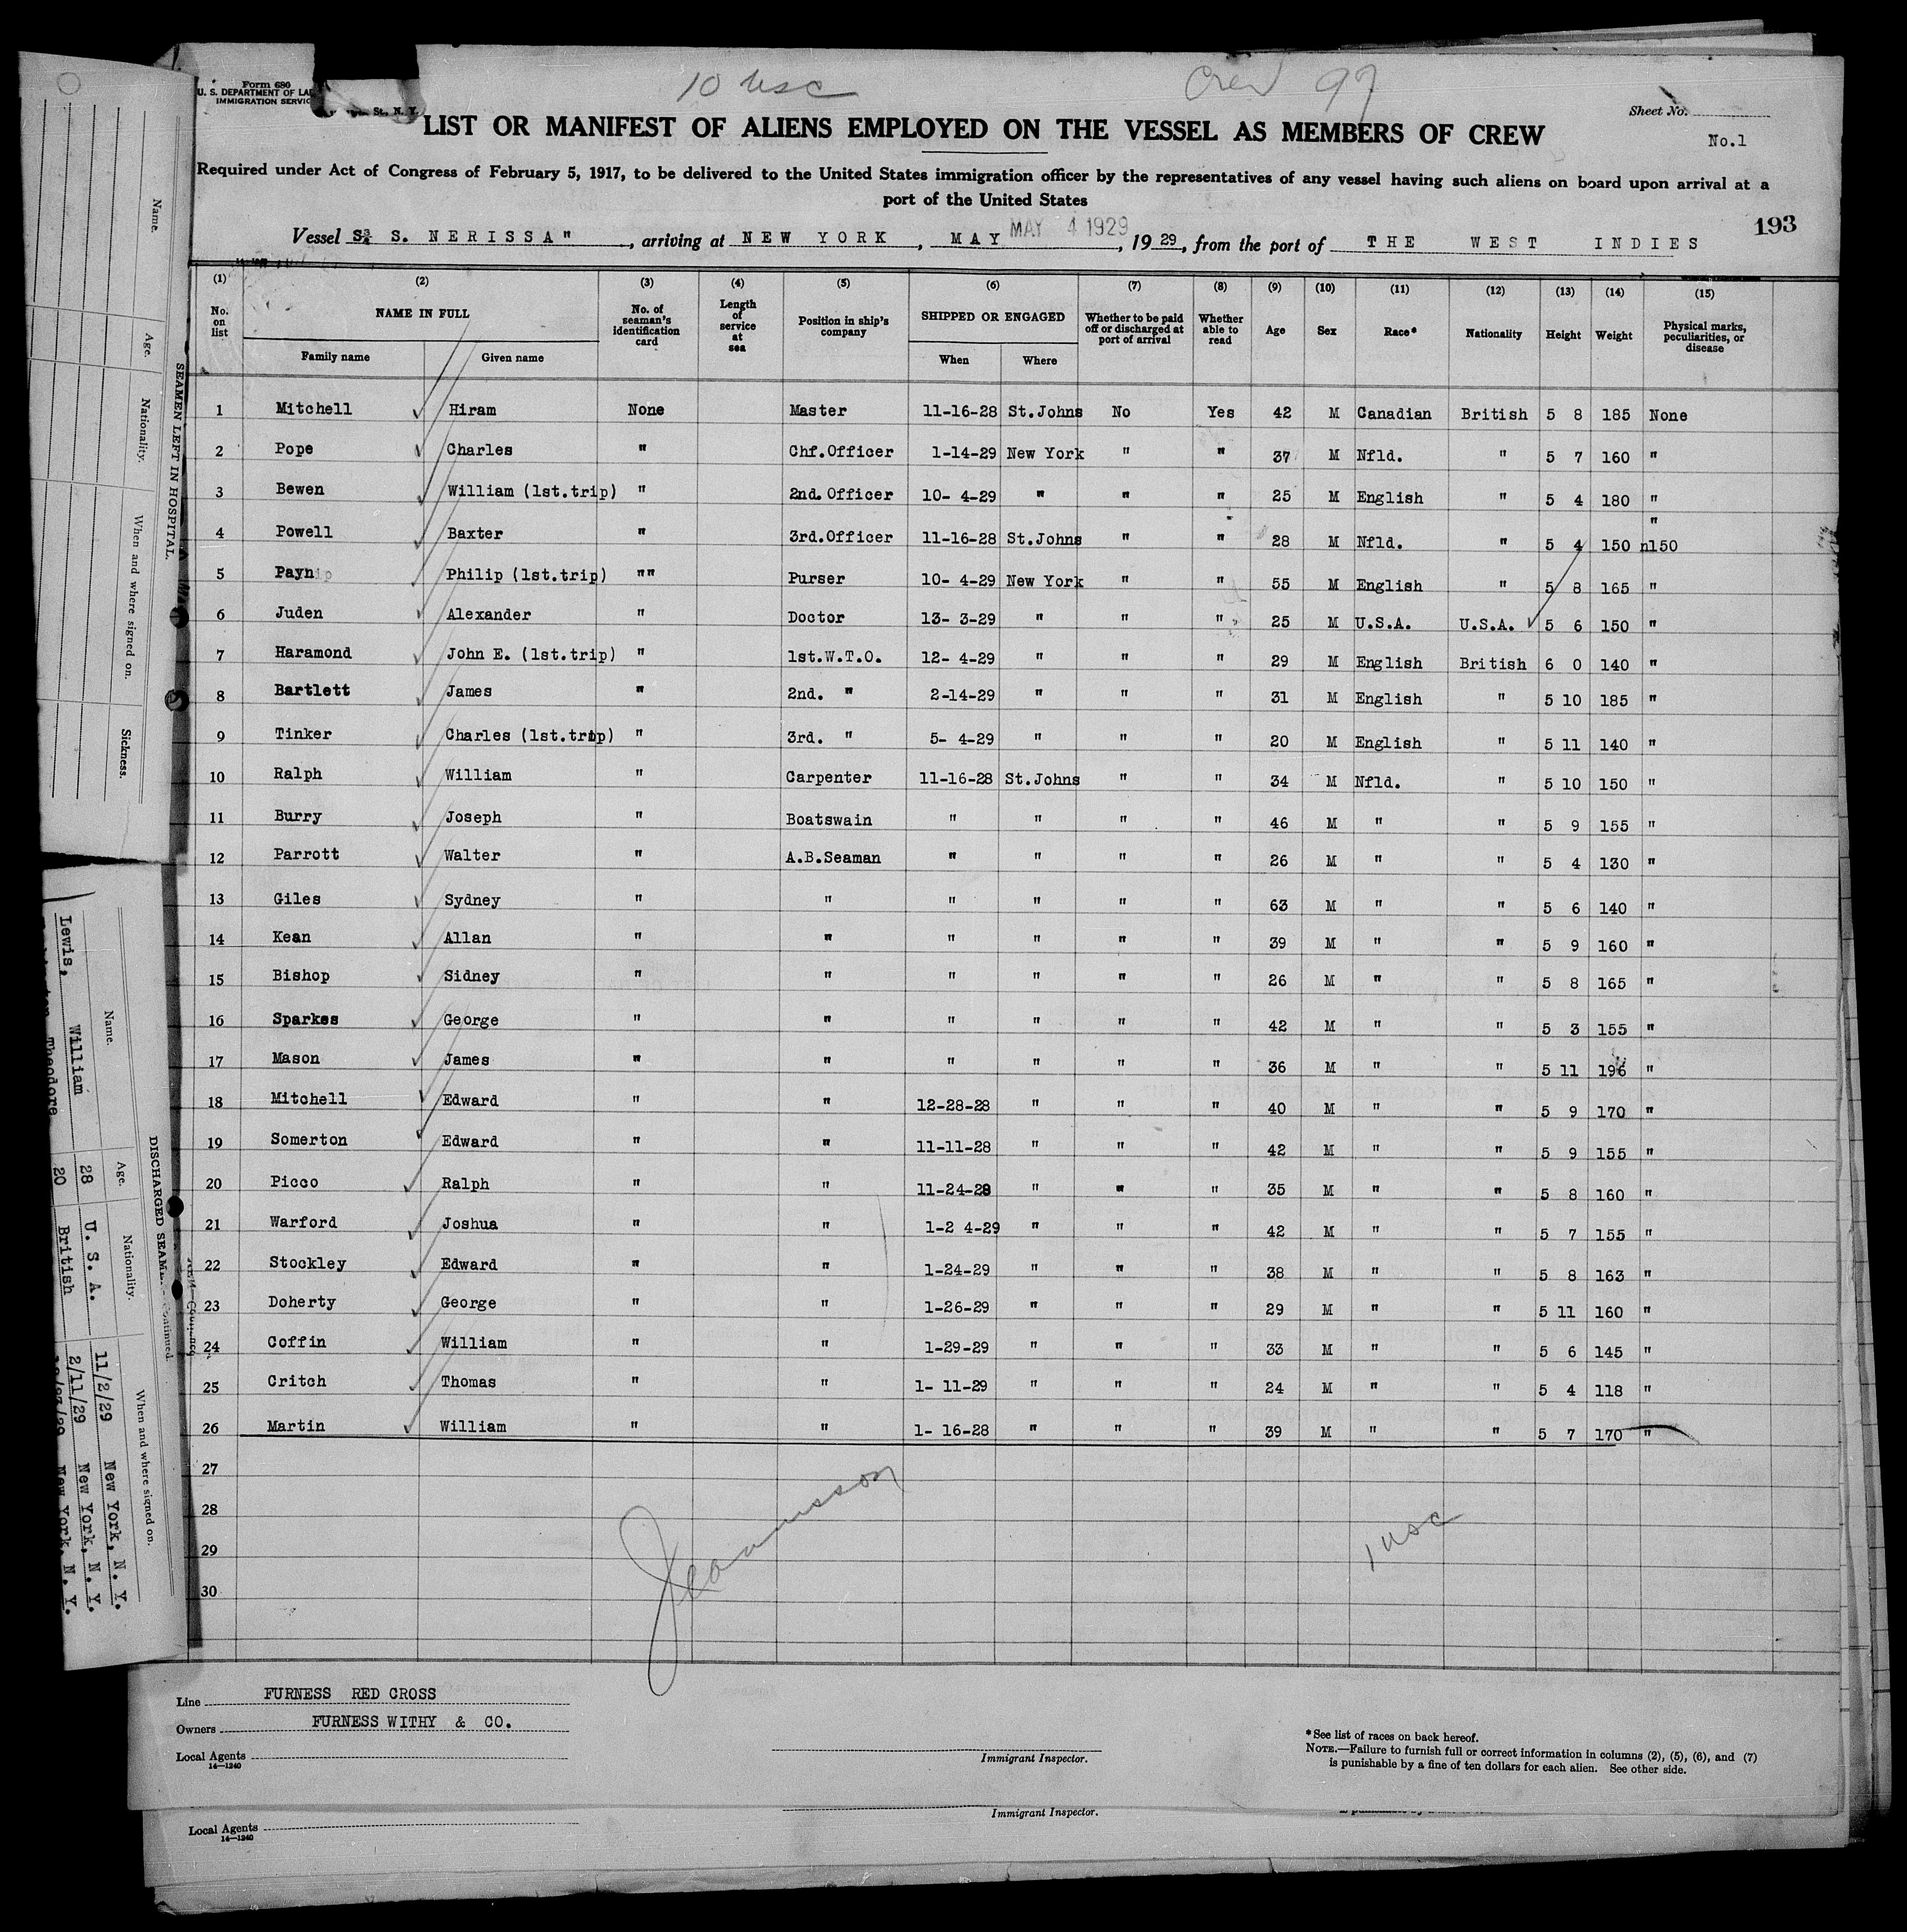 10 usc
Crew 97
Form 680
U. S. DEPARTMENT OF LA
IMMIGRATION SERVIC
St. N. Y.
Sheet No.
No.1
LIST OR MANIFEST OF ALIENS EMPLOYED ON THE VESSEL AS MEMBERS OF CREW
Required under Act of Congress of February 5, 1917, to be delivered to the United States immigration officer by the representatives of any vessel having such aliens on board upon arrival at a
port of the United States
193
MAY 4 1929
Vessel S. S. NERISSA" , arriving at NEW YORK , MAY , 19 29, from the port of THE WEST INDIES
(1) (2) (3) (4) (5) (6) (7) (8) (9) (10) (11) (12) (13) (14) (15)
No. on list NAME IN FULL Family name Given name No. of seaman's identification card Length of service at sea Position in ship's company SHIPPED OR ENGAGED When Where Whether to be paid off or discharged at port of arrival Whether able to read Age Sex Race* Nationality Height Weight Physical marks, peculiarities, or disease
1 Mitchell Hiram None Master 11-16-28 St.Johns No Yes 42 M Canadian British 5 8 185 None
2 Pope Charles " Chf.Officer 1-14-29 New York " " 37 M Nfld. " 5 7 160 "
3 Bewen William (1st.trip) " 2nd.Officer 10- 4-29 " " " 25 M English " 5 4 180 "
4 Powell Baxter " 3rd.Officer 11-16-28 St.Johns " " 28 M Nfld. " 5 4 150 n150 "
5 Payn Philip (1st.trip) "" Purser 10- 4-29 New York " " 55 M English " 5 8 165 "
6 Juden Alexander " Doctor 13- 3-29 " " " 25 M U.S.A. U.S.A. 5 6 150 "
7 Haramond John E. (1st.trip) " 1st.W.T.O. 12- 4-29 " " " 29 M English British 6 0 140 "
8 Bartlett James " 2nd. " 2-14-29 " " " 31 M English " 5 10 185 "
9 Tinker Charles (1st.trip) " 3rd. " 5- 4-29 " " " 20 M English " 5 11 140 "
10 Ralph William " Carpenter 11-16-28 St.Johns " " 34 M Nfld. " 5 10 150 "
11 Burry Joseph " Boatswain " " " " 46 M " " 5 9 155 "
12 Parrott Walter " A.B.Seaman " " " " 26 M " " 5 4 130 "
13 Giles Sydney " " " " " " 63 M " " 5 6 140 "
14 Kean Allan " " " " " " 39 M " " 5 9 160 "
15 Bishop Sidney " " " " " " 26 M " " 5 8 165 "
16 Sparkes George " " " " " " 42 M " " 5 3 155 "
17 Mason James " " " " " " 36 M " " 5 11 196 "
18 Mitchell Edward " " 12-28-28 " " " 40 M " " 5 9 170 "
19 Somerton Edward " " 11-11-28 " " " 42 M " " 5 9 155 "
20 Picco Ralph " " 11-24-28 " " " 35 M " " 5 8 160 "
21 Warford Joshua " " 1-2 4-29 " " " 42 M " " 5 7 155 "
22 Stockley Edward " " 1-24-29 " " " 38 M " " 5 8 163 "
23 Doherty George " " 1-26-29 " " " 29 M " " 5 11 160 "
24 Coffin William " " 1-29-29 " " " 33 M " " 5 6 145 "
25 Critch Thomas " " 1- 11-29 " " " 24 M " " 5 4 118 "
26 Martin William " " 1- 16-28 " " " 39 M " " 5 7 170 "
27
28
29
30
1 usc
Line FURNESS RED CROSS
Owners FURNESS WITHY & CO.
Local Agents
14—1240
Immigrant Inspector.
*See list of races on back hereof.
NOTE.—Failure to furnish full or correct information in columns (2), (5), (6), and (7)
is punishable by a fine of ten dollars for each alien. See other side.
Immigrant Inspector.
Local Agents
14—1240
SEAMEN LEFT IN HOSPITAL.
Name. Age. Nationality. When and where signed on. Sickness.
DISCHARGED SEAM
ontinued.
Name. Age. Nationality. When and where signed on.
Lewis, William 28 U. S. A. 11/2/29 New York, N. Y.
Theodore 20 British 2/11/29 New York, N. Y.
New York, N. Y.